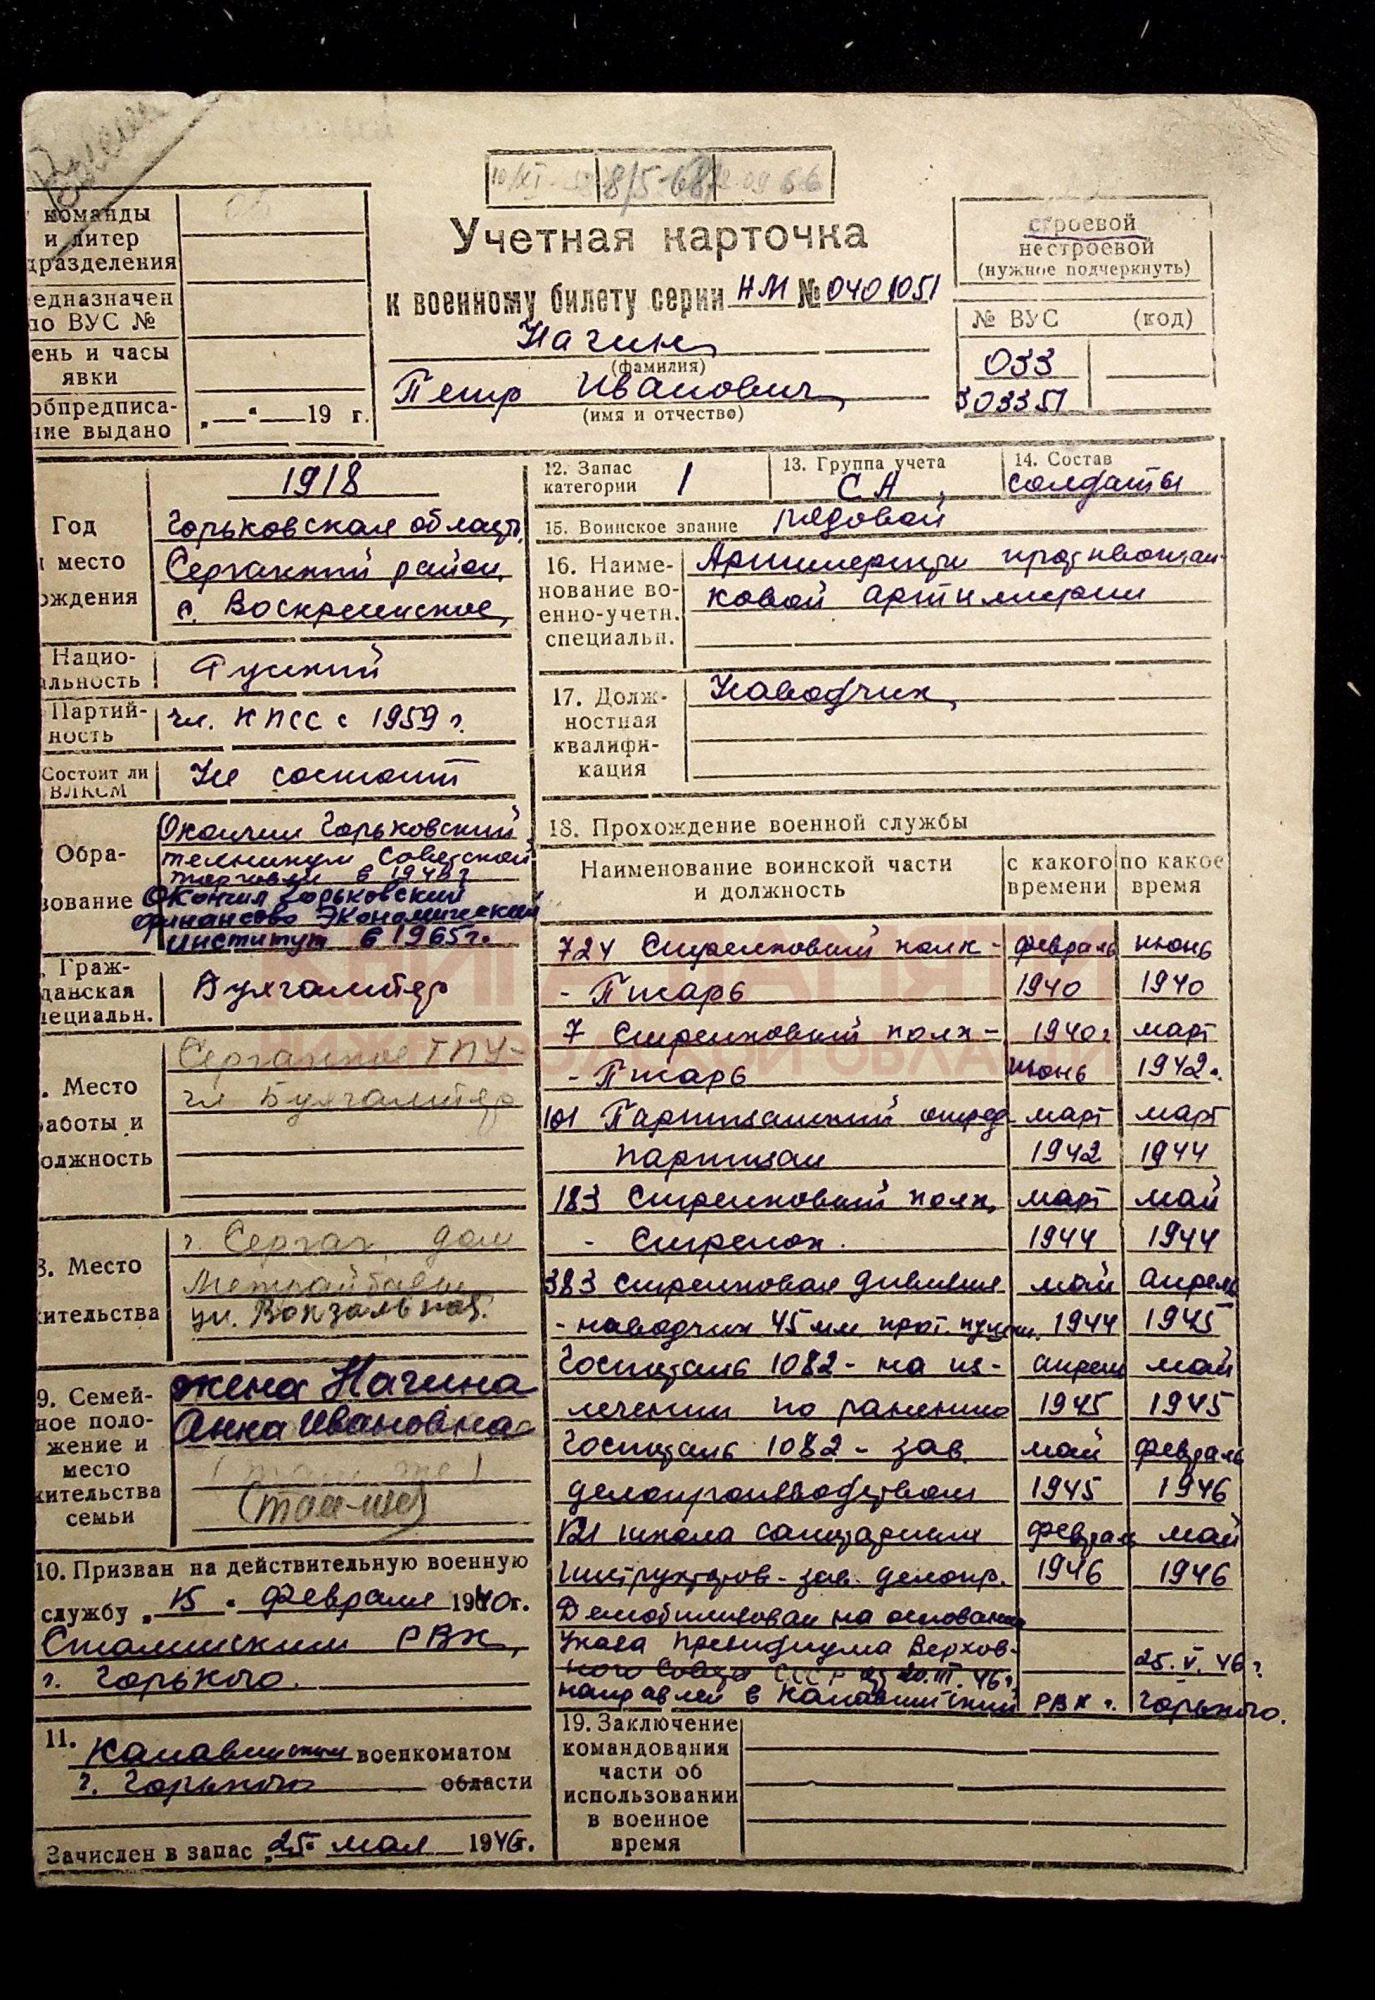 8/5-68
команды
и литер
дразделения
едназначен
по ВУС №
ень и часы
явки
обпредписа-
ние выдано
„—“ 19 г.
Учетная карточка
к военному билету серии НМ № 0401051
Нагин
(фамилия)
Петр Иванович
(имя и отчество)
строевой
нестроевой
(нужное подчеркнуть)
№ ВУС (код)
033
303351
Год
место
ождения
1918
Горьковская область,
Сергачский район,
с. Воскресенское
Нацио-
альность
Русский
Партий-
ность
чл. КПСС с 1959 г.
Состоит ли
ВЛКСМ
Не состоит
Обра-
зование
Окончил Горьковский
техникум Советской
торговли в 1940 г
Окончил Горьковский
финансово Экономический
институт в 1965 г.
Граж-
данская
пециальн.
Бухгалтер
. Место
работы и
олжность
Сергачское ТПУ-
гл Бухгалтер
8. Место
жительства
г. Сергач, дом
Межрайбазы
ул. Вокзальная.
9. Семей-
ное поло-
жение и
место
жительства
семьи
жена Нагина
Анна Ивановна
(там же)
(там-же)
10. Призван на действительную военную
службу „15“ февраля 1940 г.
Сталинским РВК,
г. Горького.
11. Канавинским военкоматом
г. Горького области
Зачислен в запас „25“ мая 1946 г.
12. Запас
категории 1
13. Группа учета
СА
14. Состав
солдаты
15. Воинское звание рядовой
16. Наиме-
нование во-
енно-учетн.
специальн.
Артиллеристы противотан-
ковой артиллерии
17. Долж-
ностная
квалифи-
кация
Наводчик
18. Прохождение военной службы
Наименование воинской части
и должность
с какого
времени
по какое
время
724 Стрелковый полк - февраль июнь
- Писарь 1940 1940
7 Стрелковый полк - 1940 г март
- Писарь июнь 1942 г.
101 Партизанский отряд- март март
партизан 1942 1944
183 Стрелковый полк, март май
- Стрелок. 1944 1944
383 стрелковая дивизия май апрель
- наводчик 45 мм прот. пушки. 1944 1945
Госпиталь 1082 - на из- апрель май
лечении по ранению 1945 1945
Госпиталь 1082 - зав. май февраль
делопроизводством 1945 1946
121 школа санитарных февраль май
инструкторов - зав. делопр. 1946 1946
Демобилизован на основании
Указа Президиума Верхов-
ного Совета СССР от 20.III.46 г. 25.V.46 г.
направлен в Канавинский РВК г. Горького.
19. Заключение
командования
части об
использовании
в военное
время
КНИГА ПАМЯТИ
НИЖЕГОРОДСКОЙ ОБЛАСТИ